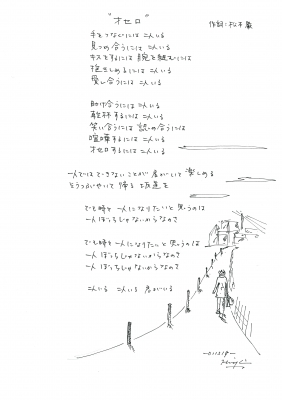 "オセロ"
作詞:松本 巌
手をつなぐには 二人いる
見つめ合うには 二人いる
キスをするには 腕を組むには
抱きしめるには 二人いる
愛し合うには 二人いる
助け合うには 二人いる
乾杯するには 二人いる
笑い合うには 認め合うには
喧嘩するには 二人いる
オセロするには 二人いる
一人ではできないことが 君がいて 楽しめる
どうつぶやいて 帰る 坂道を
でも時々 一人になりたいと 思うのは
一人ぼっちじゃないからなのさ
でも時々 一人になりたいと 思うのは
一人ぼっちじゃないからなのさ
一人ぼっちじゃないからなのさ
二人いる 二人いる 君がいる